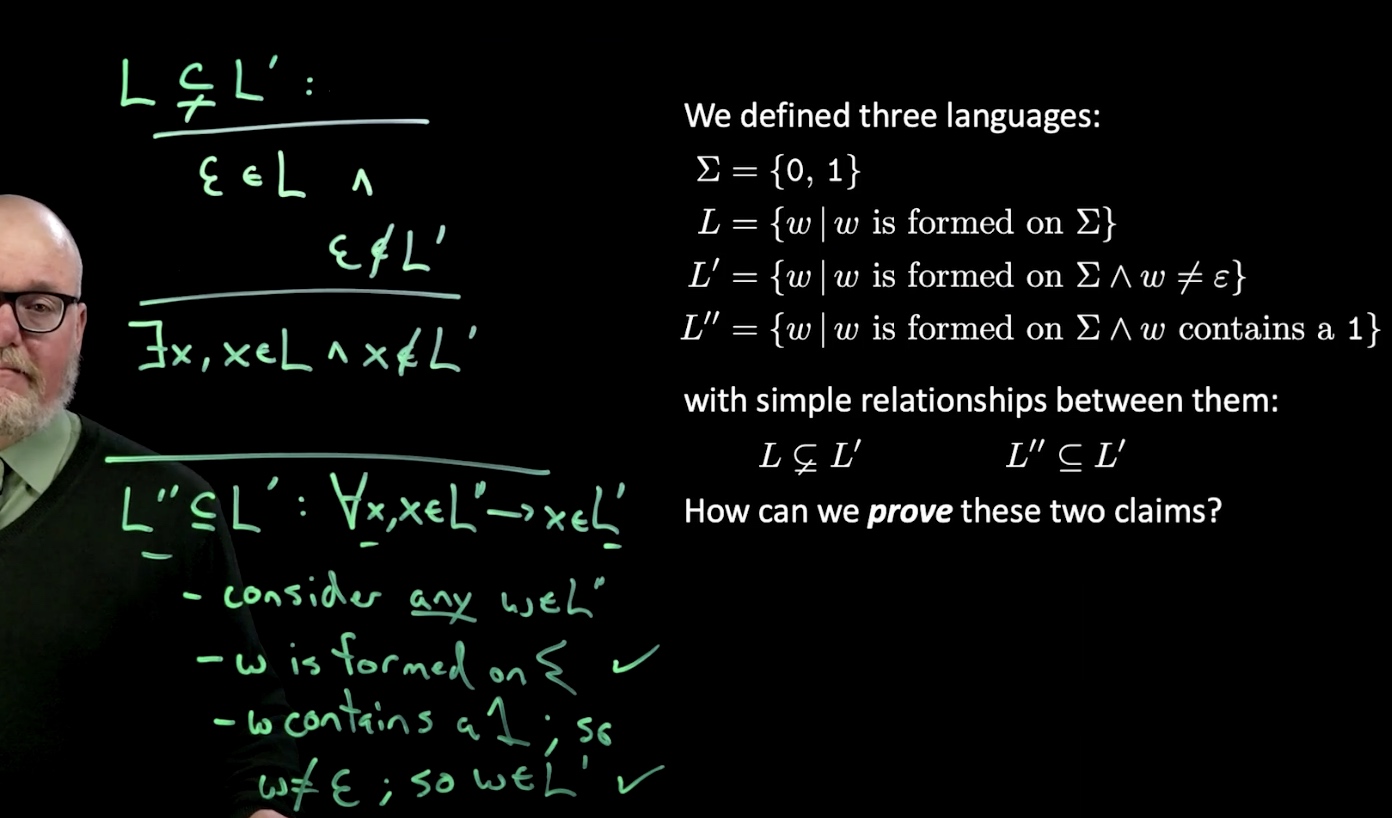 L ⊊ L′ :
ε ∈ L ∧
ε ∉ L′
∃x, x∈L ∧ x∉L′
L″ ⊆ L′ : ∀x, x∈L″ → x∈L′
- consider any w∈L″
- w is formed on Σ ✓
- w contains a 1 ; so
w ≠ ε ; so w∈L′ ✓
We defined three languages:
Σ = {0, 1}
L = {w | w is formed on Σ}
L′ = {w | w is formed on Σ ∧ w ≠ ε}
L″ = {w | w is formed on Σ ∧ w contains a 1}
with simple relationships between them:
L ⊊ L′ L″ ⊆ L′
How can we prove these two claims?